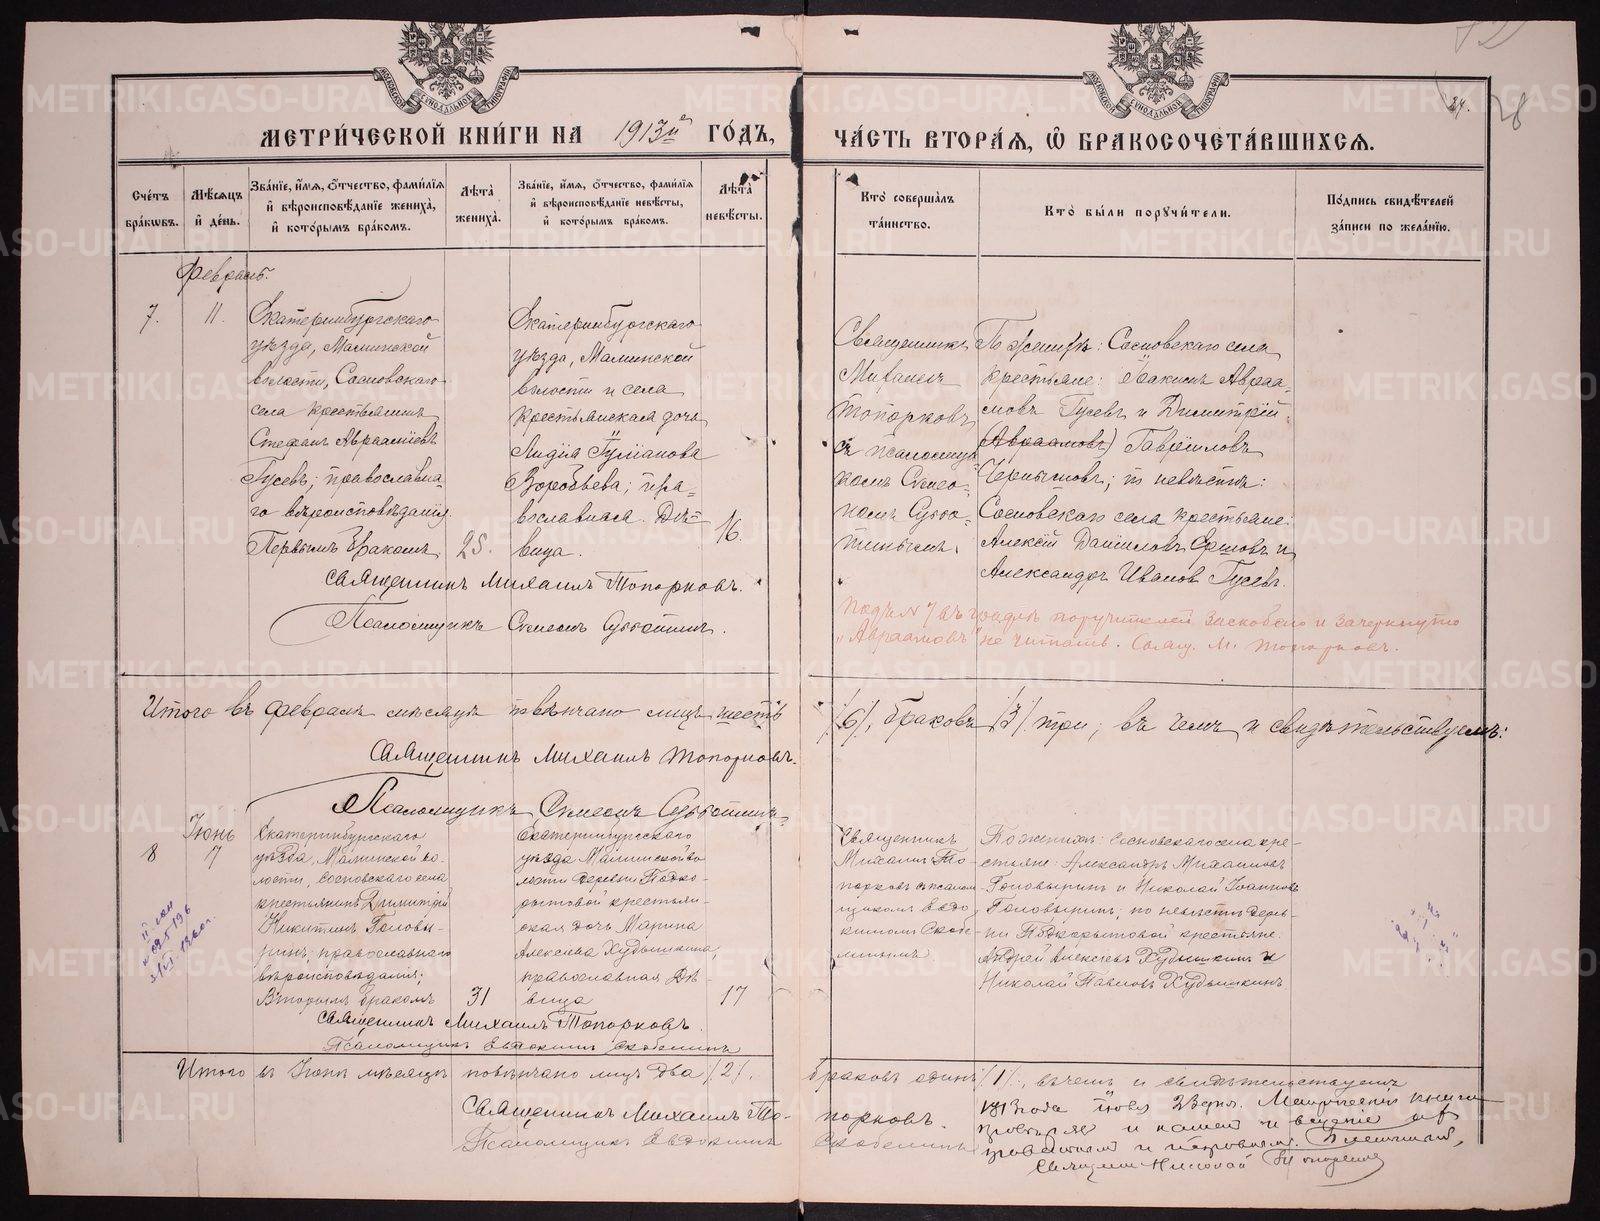 МЕТРИ́ЧЕСКОЙ КНИ́ГИ НА 1913й ГО́ДЪ,
ЧА́СТЬ ВТОРА́Я, Ѡ БРАКОСОЧЕТА́ВШИХСЯ.
24.
28
Сче́тъ бра́кѡвъ.
Мѣ́сяцъ и҆ де́нь.
Зва́нїе, и҆́мя, ѻ҆́тчество, фами́лїя
и҆ вѣроисповѣ́данїе жениха̀,
и҆ кото́рымъ бра́комъ.
Лѣ́та жениха̀.
Зва́нїе, и҆́мя, ѻ҆́тчество, фами́лїя
и҆ вѣроисповѣ́данїе невѣ́сты,
и҆ кото́рымъ бра́комъ.
Лѣ́та невѣ́сты.
Кто̀ соверша́лъ
та́инство.
Кто̀ бы́ли порꙋчи́тели.
По́дпись свидѣ́телей
за́писи по жела́нїю.
Февраль.
7.
11.
Екатеринбургскаго
уѣзда, Маминской
волости, Сосновскаго
села крестьянинъ
Стефанъ Авраамїевъ
Гусевъ; православна-
го вѣроисповѣданїя
Первымъ бракомъ
25.
Екатеринбургскаго
уѣзда, Маминской
волости и села
крестьянская дочь
Лидїя
Воробьева; пра-
вославная. Дѣ-
вица.
16.
Священникъ
Михаилъ
Топорковъ
съ псаломщи
комъ Симео-
номъ Суббо-
тинымъ.
По женихѣ: Сосновскаго села
крестьяне: Їоакимъ Авраа-
мовъ Гусевъ и Димитрїй
(Авраамовъ) Гаврїиловъ
Чернышовъ; по невѣстѣ:
Сосновскаго села крестьяне:
Алексїй Данїиловъ Ершовъ и
Александръ Ивановъ Гусевъ.
Священникъ Михаилъ Топорковъ.
Псаломщикъ Симеонъ Субботинъ.
Подъ № 7 въ графѣ поручителей заскоблено и зачеркнуто
„Авраамовъ" не читать. Свящ. М. Топорковъ.
Итого въ Февралѣ мѣсяцѣ повѣнчано лицъ шесть /6/, браковъ /3/ три; въ чемъ и свидѣтельствуемъ:
Священникъ Михаилъ Топорковъ.
Псаломщикъ Симеонъ Субботинъ.
Їюнь
8
7
Екатеринбургскаго
уѣзда, Маминской во-
лости, Сосновскаго села
крестьянинъ Димитрїй
Никитинъ Головы-
ринъ, православнаго
вѣроисповѣданїя;
Вторымъ бракомъ
31
Екатеринбургскаго
уѣзда Маминской во
лости деревни Подко-
рытовой крестьян-
ская дочь Марина
Алексеева Худышкина,
православная Дѣ-
вица
17
Священникъ
Михаилъ То-
порковъ съ псалом-
щикомъ Евдо-
кимомъ Скобе-
линымъ
По женихѣ: Сосновскаго села кре-
стьяне: Александръ Михаиловъ
Головыринъ и Николай Їоанновъ
Головыринъ; по невѣстѣ дерев-
ни Подкорытовой крестьяне:
Андрей Алексеевъ Худышкинъ и
Николай Павловъ Худышкинъ
Священникъ Михаилъ Топорковъ.
Псаломщикъ Евдокимъ Скобелинъ
Итого въ Їюнѣ мѣсяцѣ повѣнчано лицъ два /2/. браковъ одинъ /1/, въ чемъ и свидѣтельствуемъ
Священникъ Михаилъ Топорковъ.
Псаломщикъ Евдокимъ Скобелинъ
1913 года Їюля 23 дня. Метрическїя книги
Священникъ Николай